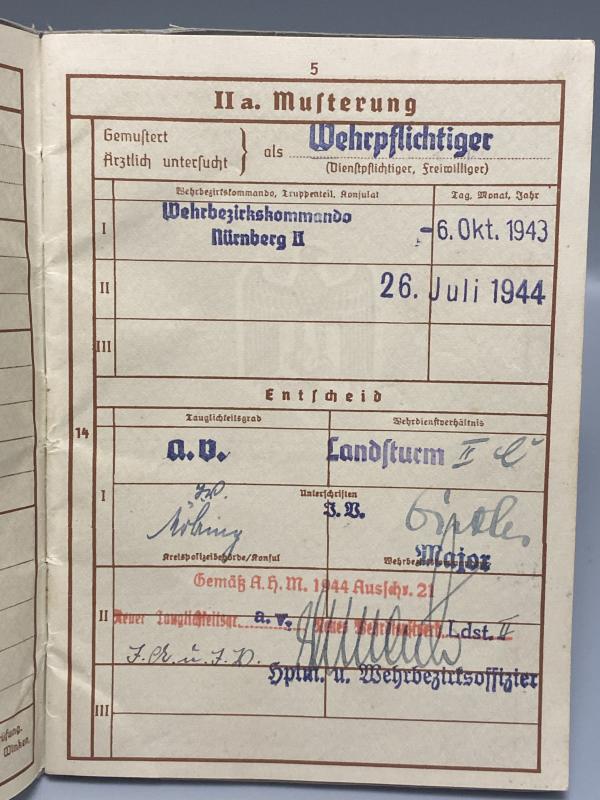 5
IIa. Musterung
Gemustert
Ärztlich untersucht } als Wehrpflichtiger
(Dienstpflichtiger, Freiwilliger)
Wehrbezirkskommando, Truppenteil, Konsulat
Tag, Monat, Jahr
I
Wehrbezirkskommando
Nürnberg II
-6. Okt. 1943
II
26. Juli 1944
III
Entscheid
14
Tauglichkeitsgrad
Wehrdienstverhältnis
I
a.v.
Landsturm II
Unterschriften
J.V.
Major
Kreispolizeibehörde/Konsul
Gemäß A.H.M. 1944 Ausschr. 21
II
Neuer Tauglichkeitsgr. a.v. Neues Wehrdienstverh. Ldst. II
Hptm. u. Wehrbezirksoffizier
III
rüfung.
Winken.